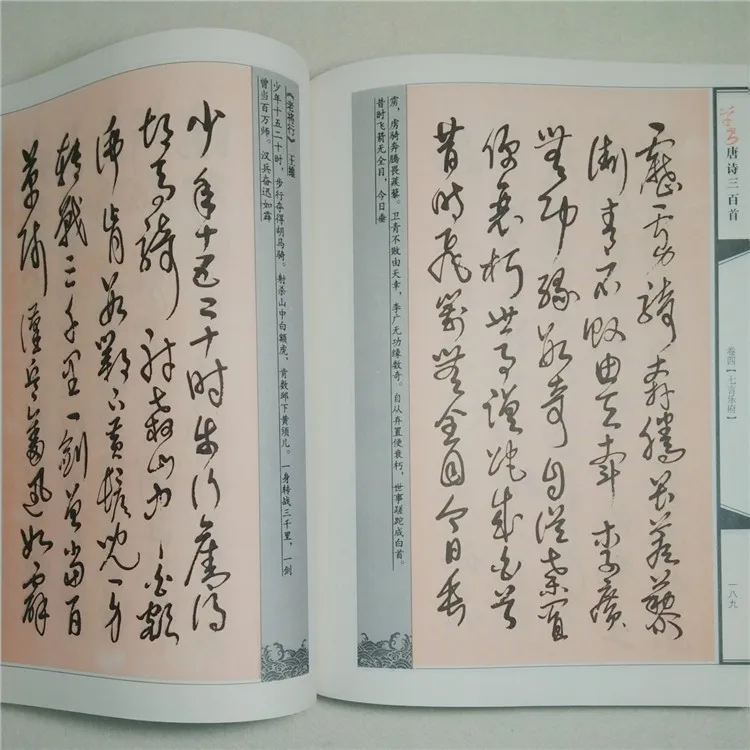 《老将行》 王维
少年十五二十时，步行夺得胡马骑。射杀山中白额虎，肯数邺下黄须儿。一身转战三千里，一剑
曾当百万师。汉兵奋迅如霹
少年十五二十時步行奪得
胡馬騎射殺山中白額
虎肯數鄴下黃鬚兒一身
轉戰三千里一劍曾當百
萬師漢兵奮迅如霹
草书唐诗三百首
卷四【七言乐府】
一八九
靂虜騎奔騰畏蒺藜
衛青不敗由天幸李廣
無功緣數奇自從棄置
便衰朽世事蹉跎成白首
昔時飛箭無全目今日垂
雳，虏骑奔腾畏蒺藜。卫青不败由天幸，李广无功缘数奇。自从弃置便衰朽，世事蹉跎成白首。
昔时飞箭无全目，今日垂